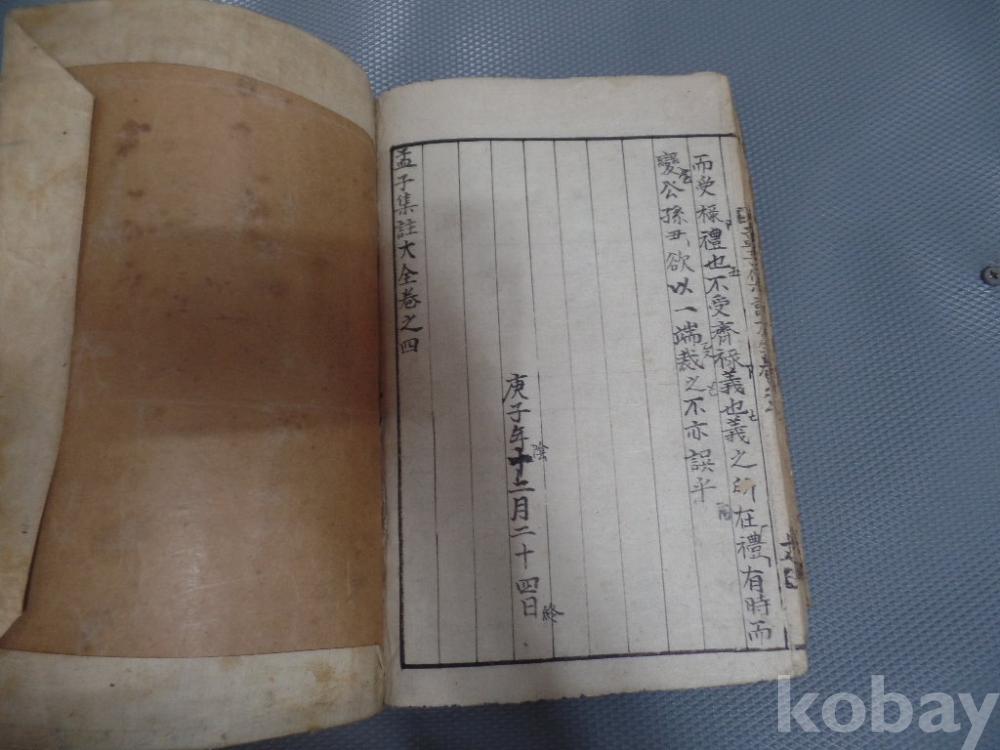 而受祿禮也不受齊祿義也義之所在禮有時而
變公孫丑欲以一端裁之不亦誤乎
庚子年陰十二月二十四日終
孟子集註大全卷之四
kobay